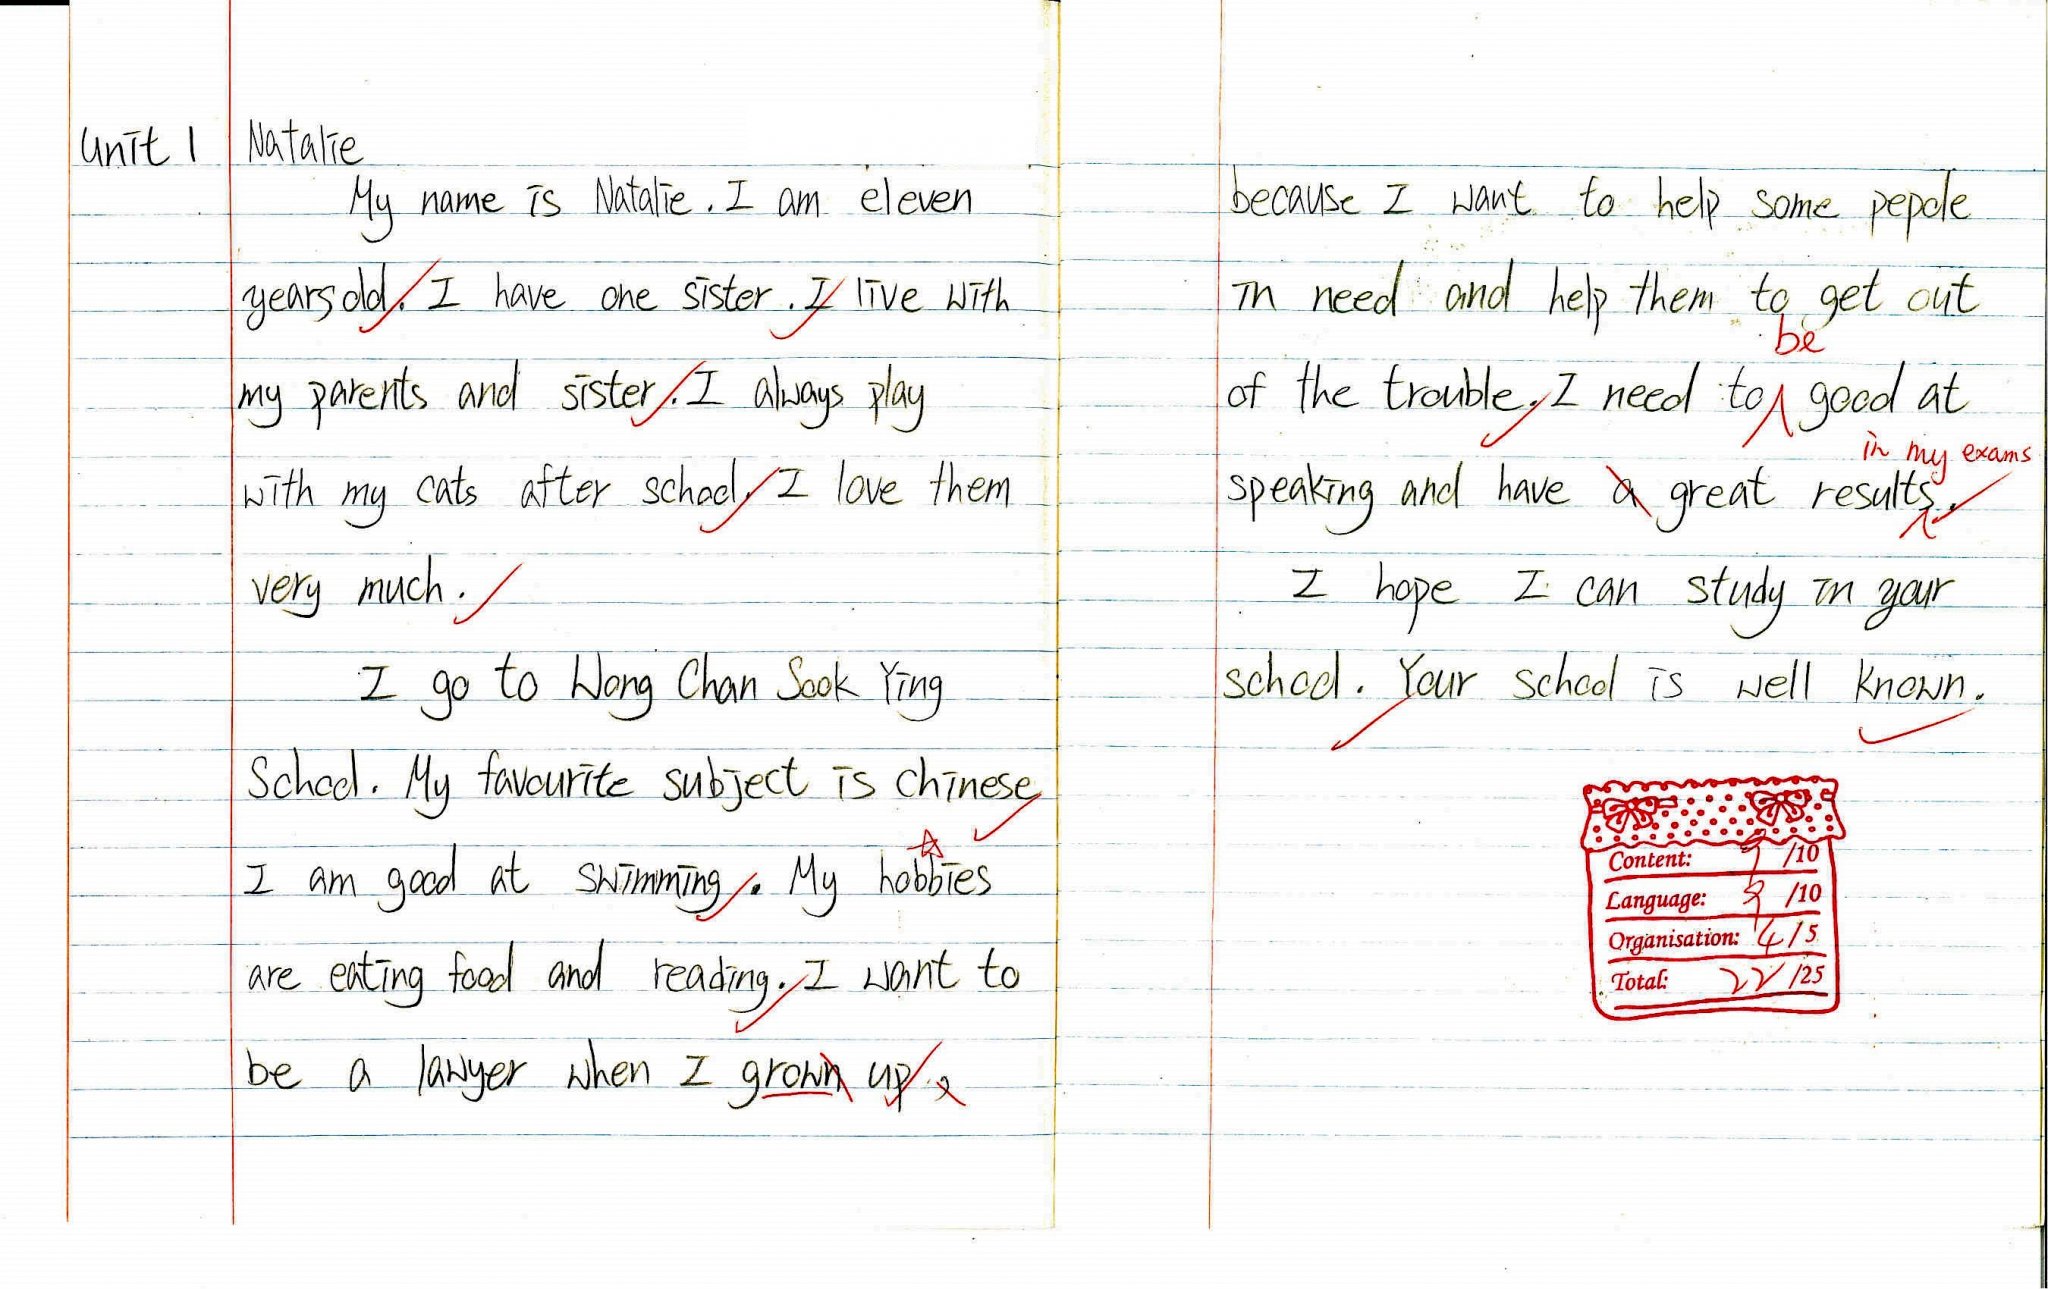 Unit 1 Natalie
My name is Natalie. I am eleven
years old. I have one sister. I live with
my parents and sister. I always play
with my cats after school. I love them
very much.
I go to Wong Chan Sook Ying
School. My favourite subject is Chinese
I am good at swimming. My hobbies
are eating food and reading. I want to
be a lawyer when I grown up.
because I want to help some pepole
in need and help them to get out
be
of the trouble. I need to good at
in my exams
speaking and have a great results.
I hope I can study in your
school. Your school is well known.
Content: 9 /10
Language: 9 /10
Organisation: 4/5
Total: 22 /25